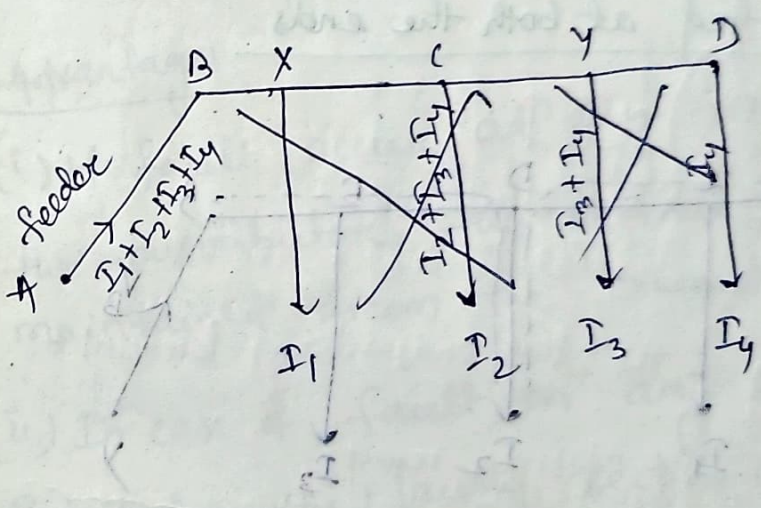 B X C Y D
A feeder
I1+I2+I3+I4
I2+I3+I4
I3+I4
I4
I1 I2 I3 I4